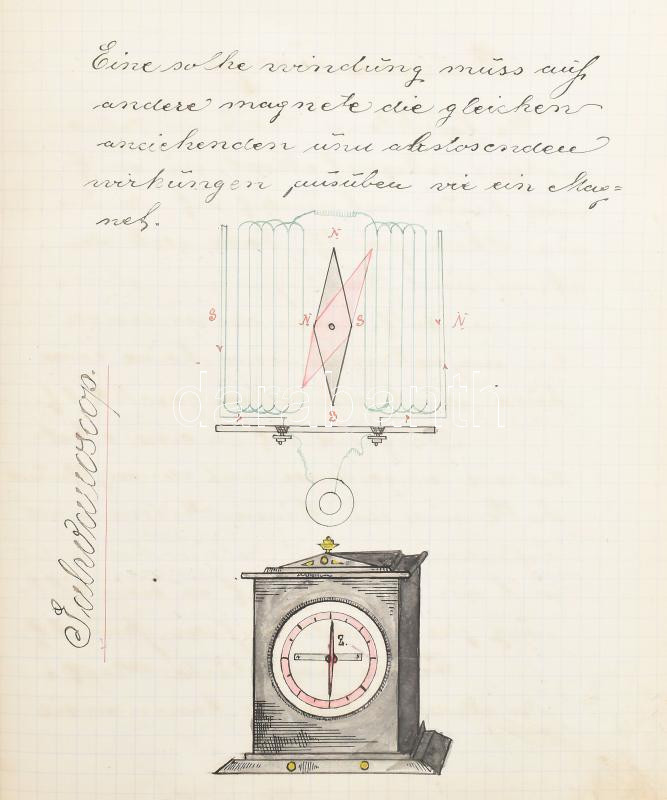 Eine solhe windung müss aüf
andere magnete die gleichen
anciehenden ünd abstosenden
wirküngen aüsüben vie ein Mag=
net.
N
N S
S N
S
Galvanoscop.
Z.
darabanth